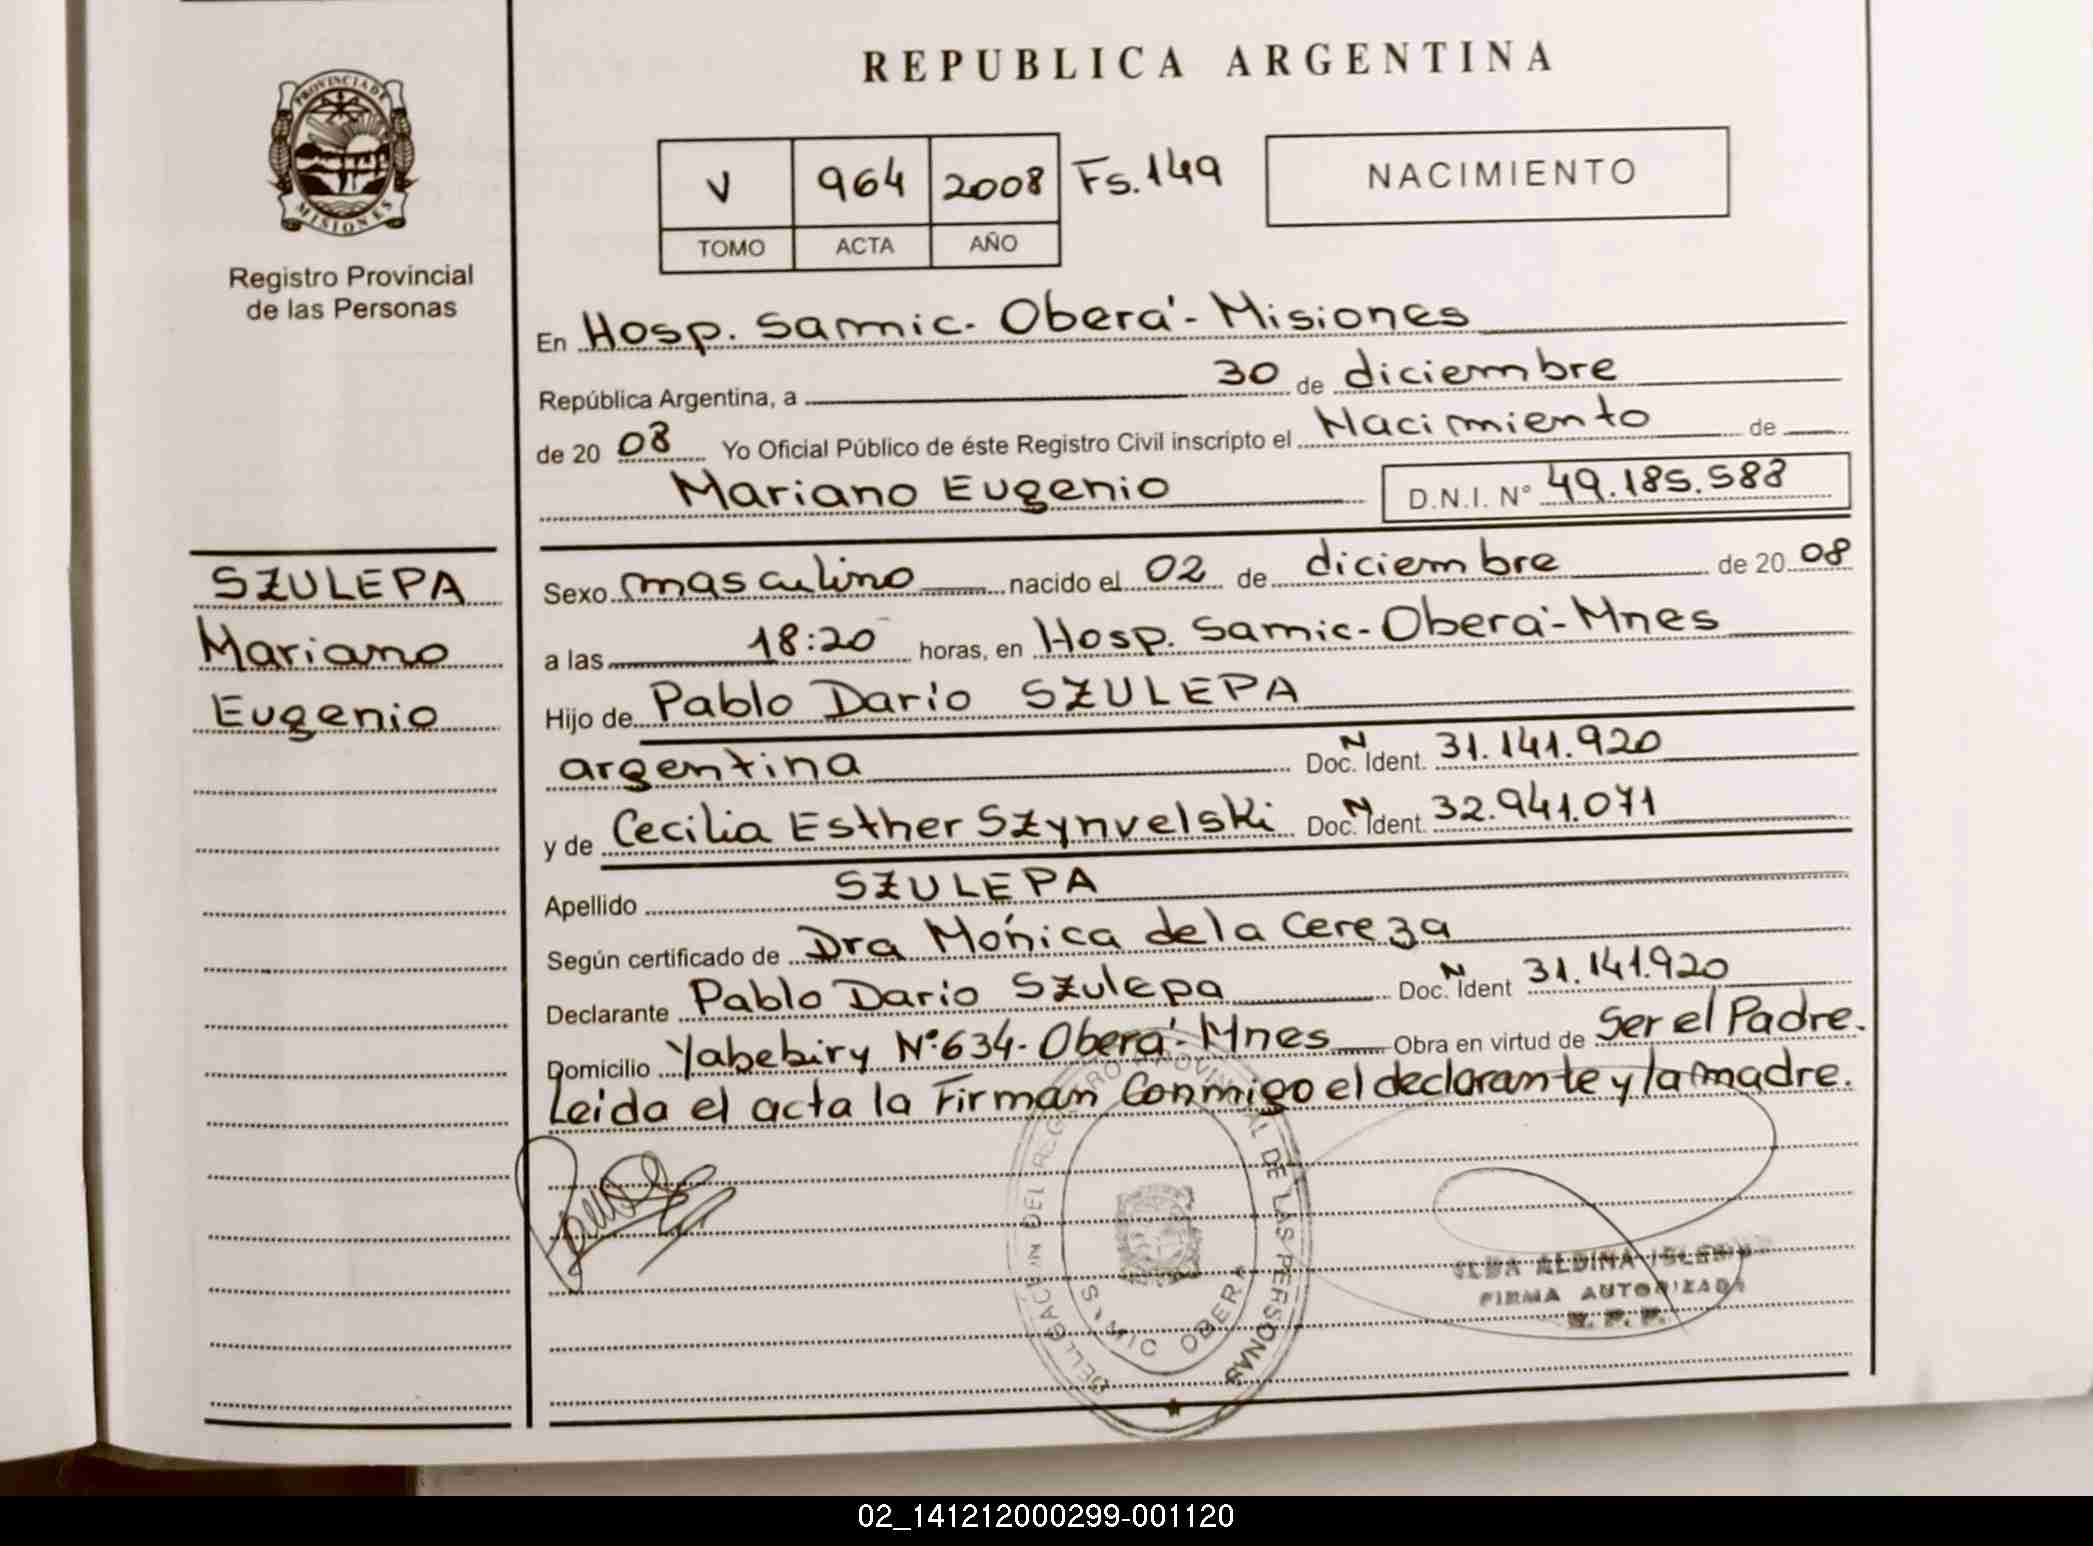 REPUBLICA ARGENTINA
PROVINCIA DE
MISIONES
Registro Provincial
de las Personas
V 964 2008 Fs. 149
TOMO ACTA AÑO
NACIMIENTO
En Hosp. Samic - Oberá - Misiones
República Argentina, a 30 de diciembre
de 20 08 Yo Oficial Público de éste Registro Civil inscripto el Nacimiento de
Mariano Eugenio D.N.I. N° 49.185.588
SZULEPA
Mariano
Eugenio
Sexo masculino nacido el 02 de diciembre de 20 08
a las 18:20 horas, en Hosp. Samic - Oberá - Mnes
Hijo de Pablo Dario SZULEPA
argentina Doc. N Ident. 31.141.920
y de Cecilia Esther Szynvelski Doc. N Ident. 32.941.071
Apellido SZULEPA
Según certificado de Dra Mónica de la Cereza
Declarante Pablo Dario Szulepa Doc. N Ident 31.141.920
Domicilio Yabebiry N° 634 - Oberá - Mnes Obra en virtud de Ser el Padre.
Leida el acta la Firman Conmigo el declarante y la madre.
REGISTRO PROVINCIAL DE LAS PERSONAS
OBERA
ALDINA
FIRMA AUTORIZADA
02_141212000299-001120